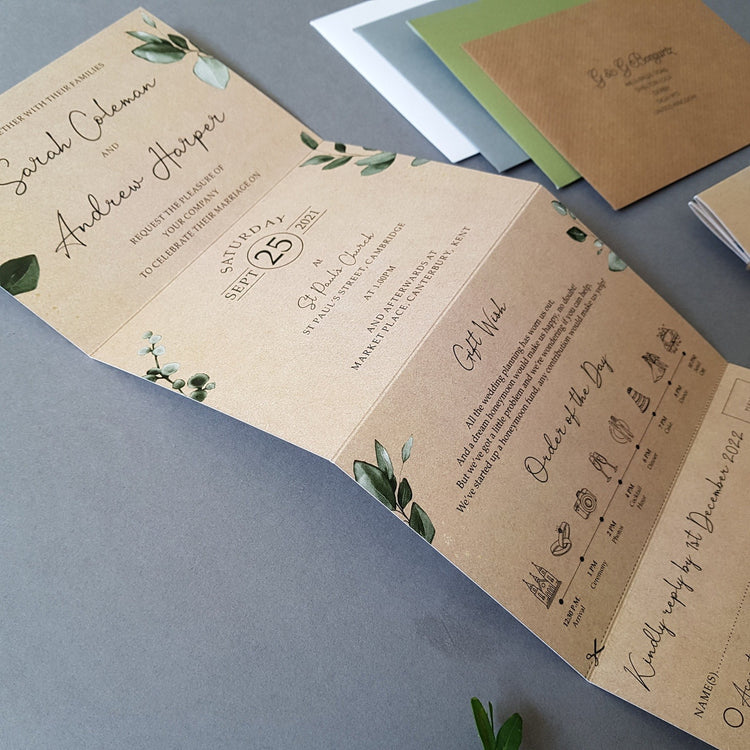 TOGETHER WITH THEIR FAMILIES
Sarah Coleman
AND
Andrew Harper
REQUEST THE PLEASURE OF
YOUR COMPANY
TO CELEBRATE THEIR MARRIAGE ON
SATURDAY
SEPT 25 2021
AT
St Pauls Church
ST PAUL'S STREET, CAMBRIDGE
AT 1.00PM
AND AFTERWARDS AT
MARKET PLACE, CANTERBURY, KENT
Gift Wish
All the wedding planning has worn us out,
And a dream honeymoon would make us happy, no doubt!
But we've got a little problem and we're wondering if you can help,
We've started up a honeymoon fund, any contribution would make us yelp!
Order of the Day
12:30 P.M
Arrival
1 PM
Ceremony
2 PM
Photos
4 PM
Cocktail
Hour
6 PM
Dinner
7 PM
Cake
8 PM
Dance
Kindly reply by 1st December 2022
NAME(S)
G & G Bongartz